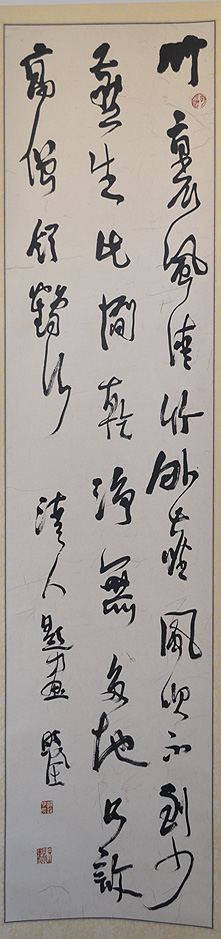 竹裏風清竹外塵風吹不到少
塵生此間乾淨無多地只許
高僧領鶴行 清人題畫